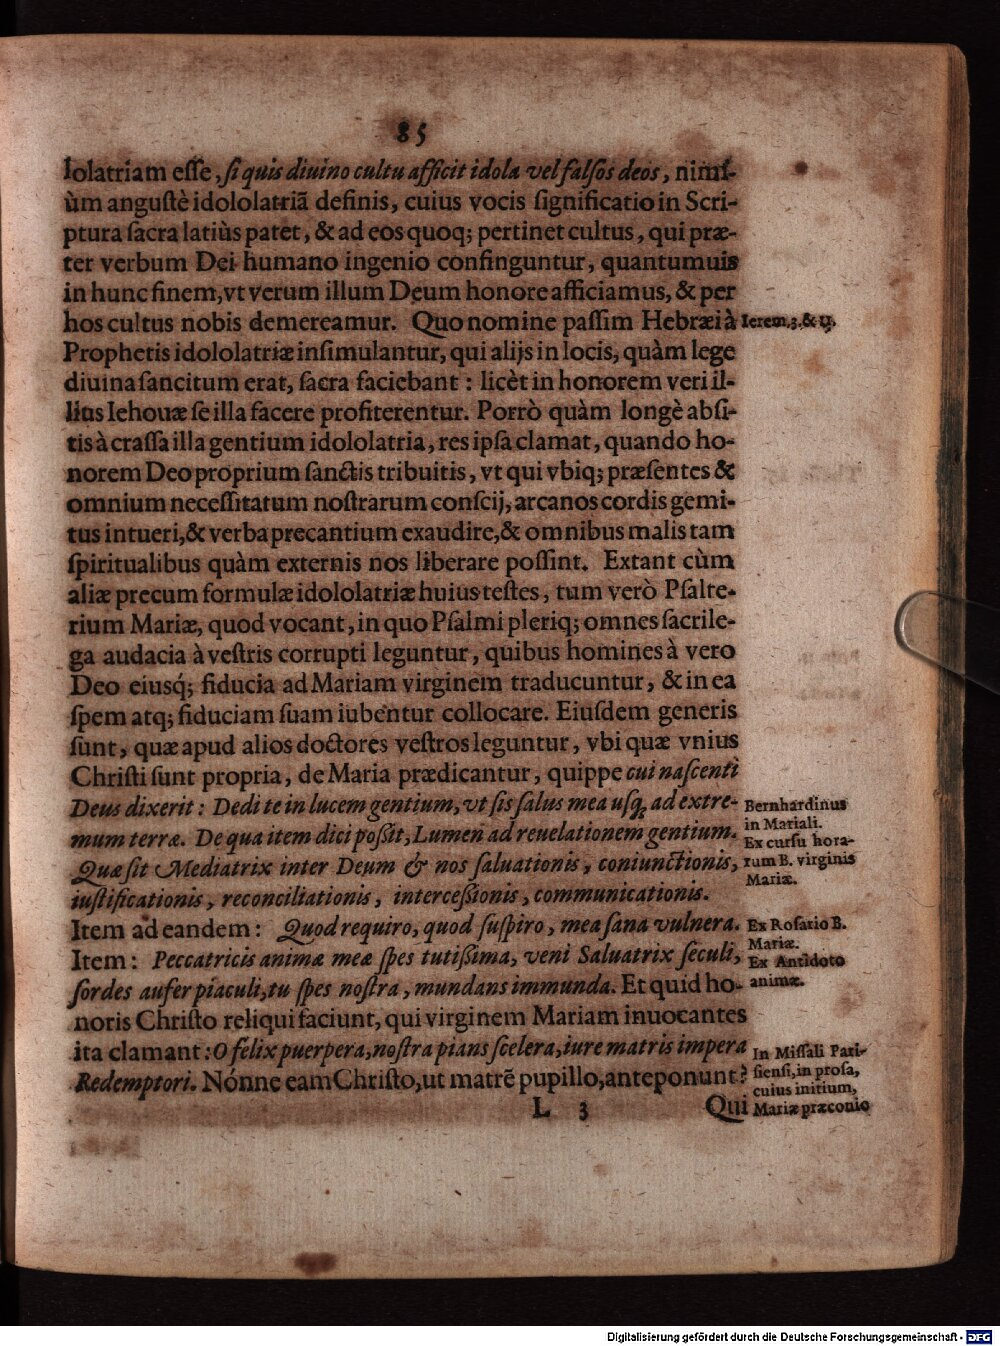 85
lolatriam esse, si quis diuino cultu afficit idola vel falsos deos, nimi-
ùm angustè idololatriã definis, cuius vocis significatio in Scri-
ptura sacra latiùs patet, & ad eos quoq; pertinet cultus, qui præ-
ter verbum Dei humano ingenio confinguntur, quantumuis
in hunc finem, vt verum illum Deum honore afficiamus, & per
hos cultus nobis demereamur. Quo nomine passim Hebræi à
Ierem. 3. &
Prophetis idololatriæ insimulantur, qui alijs in locis, quàm lege
diuina sancitum erat, sacra faciebant : licèt in honorem veri il-
lius Iehouæ se illa facere profiterentur. Porrò quàm longè absi-
tis à crassa illa gentium idololatria, res ipsa clamat, quando ho-
norem Deo proprium sanctis tribuitis, vt qui vbiq; præsentes &
omnium necessitatum nostrarum conscij, arcanos cordis gemi-
tus intueri, & verba precantium exaudire, & omnibus malis tam
spiritualibus quàm externis nos liberare possint. Extant cùm
aliæ precum formulæ idololatriæ huius testes, tum verò Psalte-
rium Mariæ, quod vocant, in quo Psalmi pleriq; omnes sacrile-
ga audacia à vestris corrupti leguntur, quibus homines à vero
Deo eiusq́; fiducia ad Mariam virginem traducuntur, & in ea
spem atq; fiduciam suam iubentur collocare. Eiusdem generis
sunt, quæ apud alios doctores vestros leguntur, vbi quæ vnius
Christi sunt propria, de Maria prædicantur, quippe cui nascenti
Deus dixerit : Dedi te in lucem gentium, vt sis salus mea usq; ad extre-
mum terræ. De qua item dici possit, Lumen ad reuelationem gentium.
Quæ sit Mediatrix inter Deum & nos saluationis, coniunctionis,
iustificationis, reconciliationis, intercessionis, communicationis.
Bernhardinus
in Mariali.
Ex cursu hora-
rum B. virginis
Mariæ.
Item ad eandem : Quod requiro, quod suspiro, mea sana vulnera.
Item : Peccatricis animæ meæ spes tutissima, veni Saluatrix seculi,
sordes aufer piaculi, tu spes nostra, mundans immunda. Et quid ho-
Ex Rosario B.
Mariæ.
Ex Antidoto
animæ.
noris Christo reliqui faciunt, qui virginem Mariam inuocantes
ita clamant : O felix puerpera, nostra pians scelera, iure matris impera
Redemptori. Nónne eam Christo, ut matrẽ pupillo, anteponunt?
In Missali Pari-
siensi, in prosa,
cuius initium,
Mariæ præconio
L 3
Qui
Digitalisierung gefördert durch die Deutsche Forschungsgemeinschaft - DFG